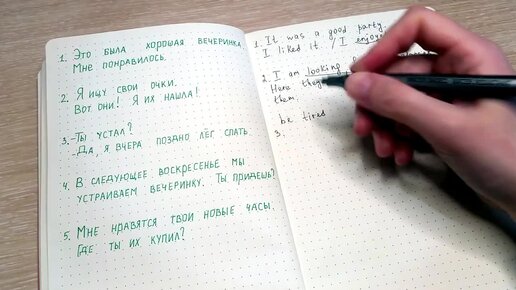 1. Это была хорошая вечеринка.
Мне понравилось.
2. Я ищу свои очки.
Вот они! Я их нашла!
3. -Ты устал?
-Да, я вчера поздно лёг спать.
4. В следующее воскресенье мы
устраиваем вечеринку. Ты придешь?
5. Мне нравятся твои новые часы.
Где ты их купил?
1. It was a good party.
I liked it. / I enjoye
2. I am looking
Here they
them.
be tired
3.